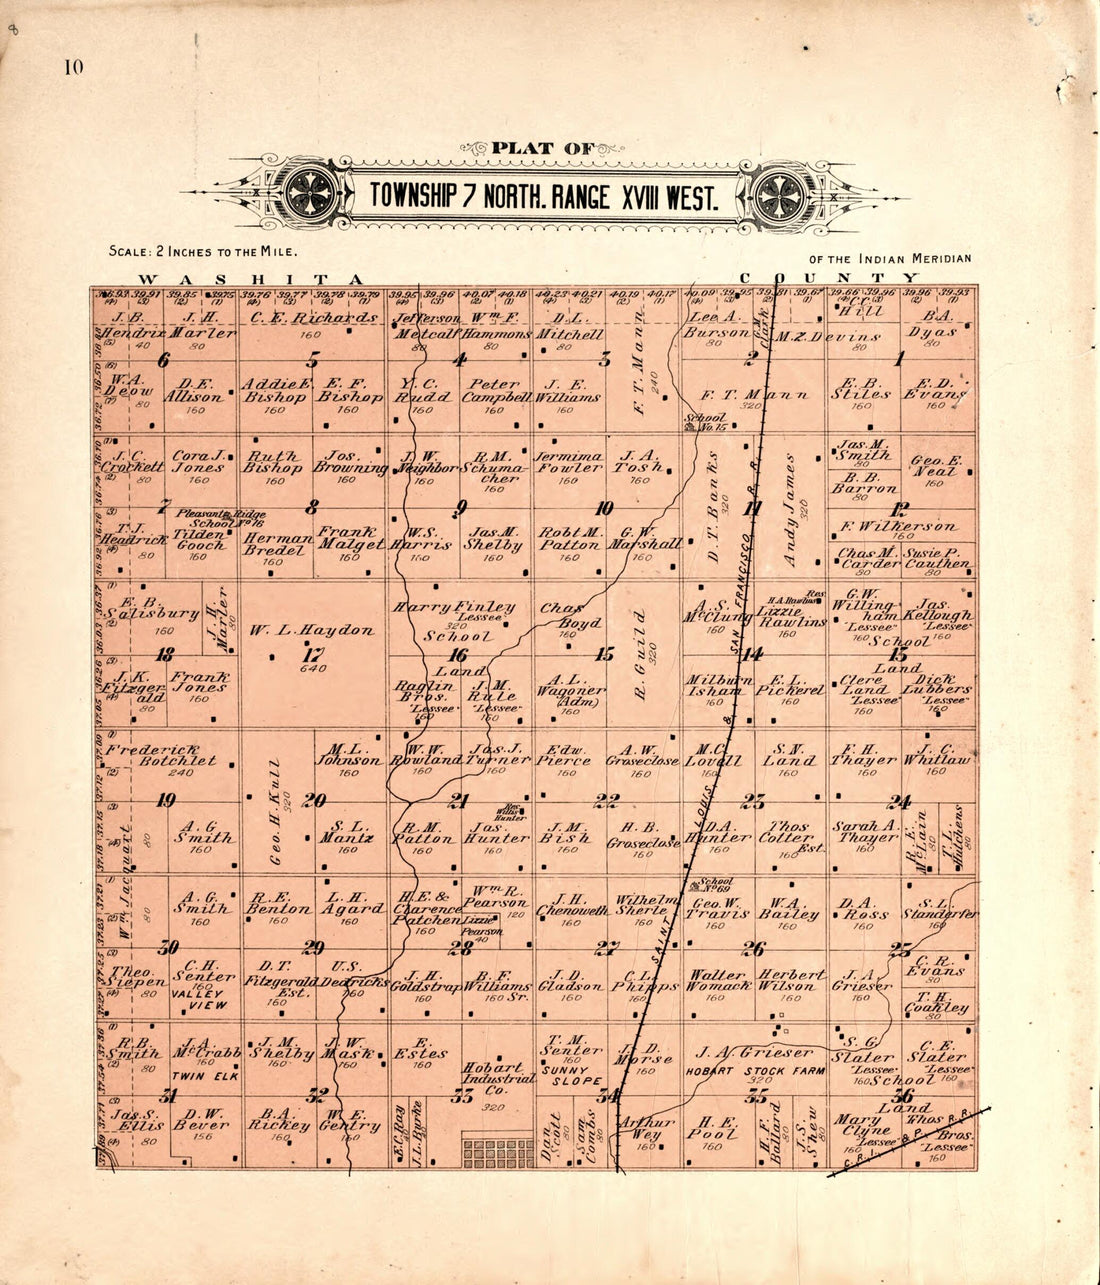 8
10
PLAT OF
TOWNSHIP 7 NORTH. RANGE XVIII WEST.
SCALE: 2 INCHES TO THE MILE.
OF THE INDIAN MERIDIAN
WASHITA COUNTY
J.B. Hendrix 40
J.H. Marler 80
C.E. Richards 160
Jefferson Metcalf 80
Wm F. Hammons 80
D.L. Mitchell 80
F.T. Mann 240
Lee A. Burson 80
Clark
M.Z. Devins 80
C.C. Hill
B.A. Dyas 80
6
5
4
3
2
1
W.A. Deow 80
D.E. Allison 160
Addie E. Bishop 160
E.F. Bishop 160
Y.C. Rudd 160
Peter Campbell 160
J.E. Williams 160
F.T. Mann 320
School No. 15
E.B. Stiles 160
E.D. Evans 160
J.C. Crockett 80
Cora J. Jones 160
Ruth Bishop 160
Jos. Browning 160
J.W. Neighbor 160
R.M. Schumacher 160
Jermima Fowler 160
J.A. Tosh 160
D.T. Banks 320
Andy James 320
Jas. M. Smith 80
B.B. Barron 80
Geo. E. Neal 160
7
8
9
10
11
12
Pleasant Ridge School No 16
T.J. Headrick 80
Tilden Gooch 160
Herman Bredel 160
Frank Malget 160
W.S. Harris 160
Jas M. Shelby 160
Robt M. Patton 160
G.W. Marshall 160
F. Wilkerson 160
Chas M. Carder 80
Susie P. Cauthen 80
E.B. Salisbury 160
J.H. Marler 80
W.L. Haydon 640
Harry Finley Lessee 320
School Land
Chas Boyd 160
R. Guild 320
A.S. McClung 160
H.A. Rawlins Res.
Lizzie Rawlins 160
G.W. Willingham "Lessee" 160
Jas. Kellough "Lessee" 160
School Land
18
17
16
15
14
13
J.K. Fitzgerald 80
Frank Jones 160
Raglin Bros. "Lessee" 160
J.M. Rule "Lessee" 160
A.L. Wagoner (Adm) 160
Milburn Isham 160
E.L. Pickerel 160
Clere Land "Lessee" 160
Dick Lubbers "Lessee" 160
Frederick Botchlet 240
Geo. H. Kull 320
M.L. Johnson 160
W.W. Rowland 160
Jas. J. Turner 160
Edw. Pierce 160
A.W. Groseclose 160
M.C. Lovell 160
S.N. Land 160
F.H. Thayer 160
J.C. Whitlaw 160
19
20
21
22
23
24
Res. Willis Hunter
A.G. Smith 160
S.L. Mantz 160
R.M. Patton 160
Jas. Hunter 160
J.M. Bish 160
H.B. Groseclose 160
D.A. Hunter 160
Thos Colter Est. 160
Sarah A. Thayer 160
R.E. McLain 80
T.L. Hutchens 80
Wm Jacquart 80 80
A.G. Smith 160
R.E. Benton 160
L.H. Agard 160
H.E. & Clarence Patchen 160
Wm R. Pearson 120
Lizzie Pearson 40
J.H. Chenoweth 160
Wilhelm Sherle 160
School No 69
Geo. W. Travis 160
W.A. Bailey 160
D.A. Ross 160
S.L. Standerfer 160
30
29
28
27
26
25
Theo. Siepen 80
C.H. Senter 160
VALLEY VIEW
D.T. Fitzgerold Est. 160
U.S. Dedricks 160
J.H. Goldstrap 160
B.F. Williams Sr. 160
J.D. Gladson 160
C.L. Phipps 160
Walter Womack 160
Herbert Wilson 160
J.A. Grieser 160
C.R. Evans 80
T.H. Coakley 80
R.B. Smith 80
J.A. McCrabb 160
TWIN ELK
J.M. Shelby 160
J.W. Mask 160
E. Estes 160
Hobart Industrial Co. 320
T.M. Senter 160
SUNNY SLOPE
J.D. Morse 160
J.A. Grieser
HOBART STOCK FARM 320
S.G. Slater "Lessee" 160
C.E. Slater "Lessee" 160
School Land
31
32
33
34
35
36
Jas. S. Ellis 80
D.W. Bever 156
B.A. Rickey 160
W.E. Gentry 160
E.C. Ray 80
J.L. Burke 80
Dan. Scott 80
Sam Combs 80
Arthur Wey 160
H.E. Pool 160
H.F. Ballard 80
J.S. Shew 80
Mary Clyne "Lessee" 160
Thos Bros. "Lessee" 160
SAINT LOUIS & SAN FRANCISCO R.R.
C.R.I. & P. R.R.